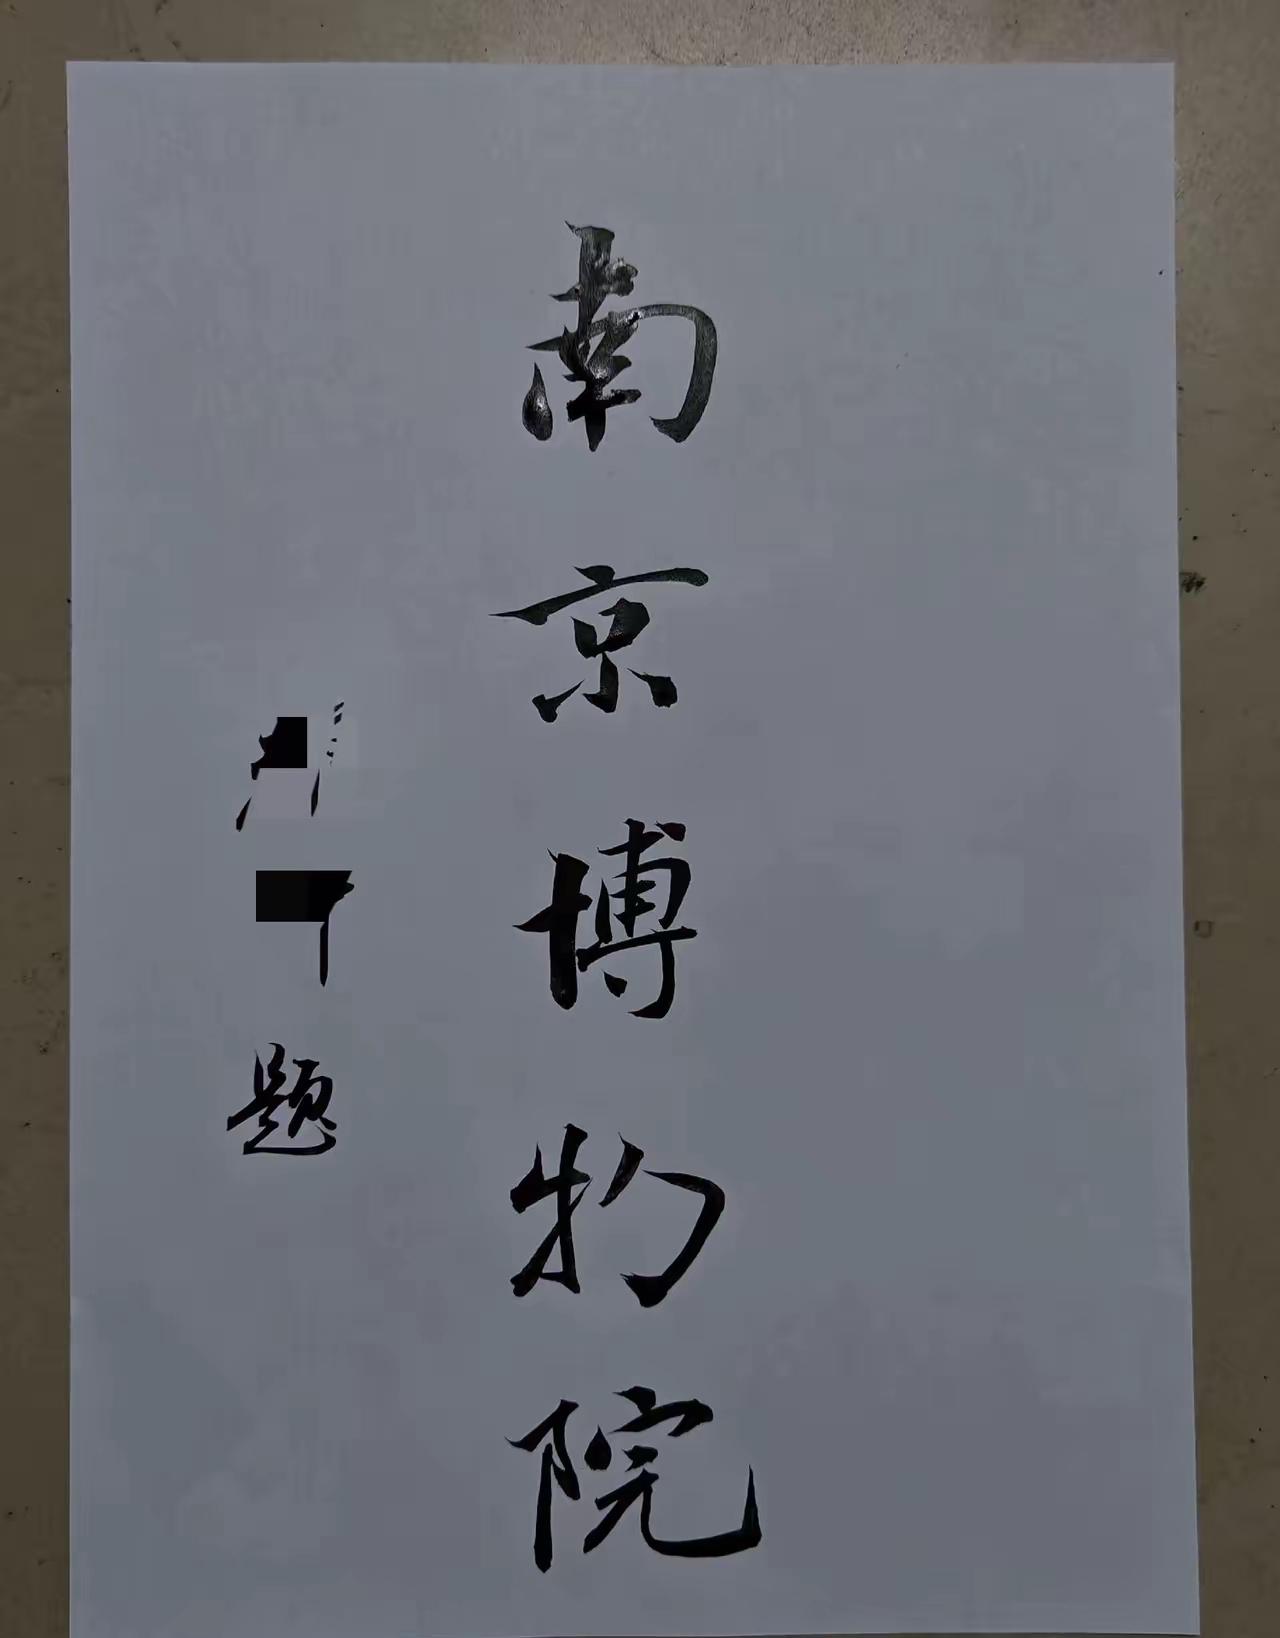 南京博物院
题